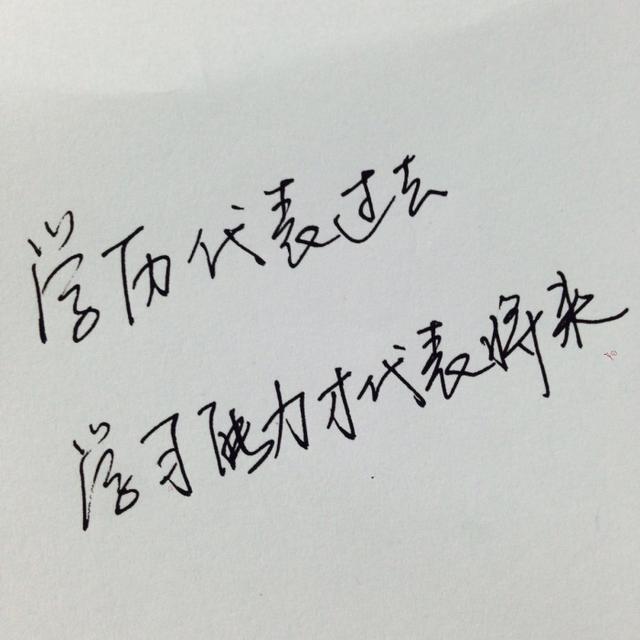 学历代表过去
学习能力才代表将来